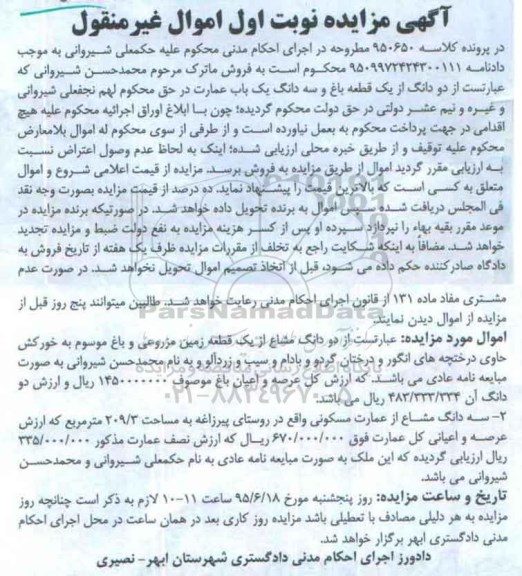 آگهی مزایده نوبت اول اموال غیرمنقول
در پرونده کلاسه ۹۵۰۶۵۰ مطروحه در اجرای احکام مدنی محکوم علیه حکمعلی شیروانی به موجب
دادنامه ۹۵۰۹۹۷۲۴۲۴۳۰۰۱۱۱ محکوم است به فروش ماترک مرحوم محمدحسن شیروانی که
عبارتست از دو دانگ از یک قطعه باغ و سه دانگ یک باب عمارت در حق محکوم لهم نجفعلی شیروانی
و غیره و نیم عشر دولتی در حق دولت محکوم گردیده؛ چون با ابلاغ اوراق اجرائیه محکوم علیه هیچ
اقدامی در جهت پرداخت محکوم به بعمل نیاورده است و از طرفی از سوی محکوم له اموال بلامعارض
محکوم علیه توقیف و از طریق خبره محلی ارزیابی شده؛ اینک به لحاظ عدم وصول اعتراض نسبت
به ارزیابی مقرر گردید اموال از طریق مزایده به فروش برسد. مزایده از قیمت اعلامی شروع و اموال
متعلق به کسی است که بالاترین قیمت را پیشنهاد نماید. ده درصد از قیمت مزایده بصورت وجه نقد
فی المجلس دریافت شده سپس اموال به برنده تحویل داده خواهد شد. در صورتیکه برنده مزایده در
موعد مقرر بقیه بهاء را نپردازد سپرده او پس از کسر هزینه مزایده به نفع دولت ضبط و مزایده تجدید
خواهد شد. مضافا به اینکه شکایت راجع به تخلف از مقررات مزایده ظرف یک هفته از تاریخ فروش به
دادگاه صادرکننده حکم داده می شود، قبل از اتخاذ تصمیم اموال تحویل نخواهد شد. در صورت عدم
مشتری مفاد ماده ۱۳۱ از قانون اجرای احکام مدنی رعایت خواهد شد. طالبین میتوانند پنج روز قبل از
مزایده از اموال دیدن نمایند.
اموال مورد مزایده: عبارتست از دو دانگ مشاع از یک قطعه زمین مزروعی و باغ موسوم به خورکش
حاوی درختچه های انگور و درختان گردو و بادام و سیب و زردآلو و به نام محمدحسن شیروانی به صورت
مبایعه نامه عادی می باشد. که ارزش کل عرصه و اعیان باغ موصوف ۱۴۵۰۰۰۰۰۰۰ ریال و ارزش دو
دانگ آن ۴۸۳/۳۳۳/۳۳۴ ریال می باشد.
۲- سه دانگ مشاع از عمارت مسکونی واقع در روستای پیرزاغه به مساحت ۲۰۹/۳ مترمربع که ارزش
عرصه و اعیانی کل عمارت فوق ۶۷۰/۰۰۰/۰۰۰ ریال که ارزش نصف عمارت مذکور ۳۳۵/۰۰۰/۰۰۰
ریال ارزیابی گردیده که این ملک به صورت مبایعه نامه عادی به نام حکمعلی شیروانی و محمدحسن
شیروانی می باشد.
تاریخ و ساعت مزایده: روز پنجشنبه مورخ ۹۵/۶/۱۸ ساعت ۱۱-۱۰ لازم به ذکر است چنانچه روز
مزایده به هر دلیلی مصادف با تعطیلی باشد مزایده روز کاری بعد در همان ساعت در محل اجرای احکام
مدنی دادگستری ابهر برگزار خواهد شد.
دادورز اجرای احکام مدنی دادگستری شهرستان ابهر- نصیری
ParsNamadData
۰۲۱-۸۸۳۴۹۶۷۰-۵